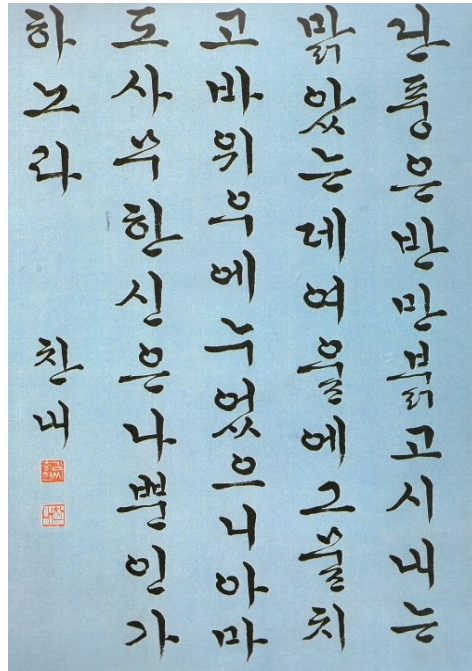 단풍은반만붉고시내는
맑았는데여울에그물치
고바위우에누었으니아마
도사무한신은나뿐인가
하노라
찬내